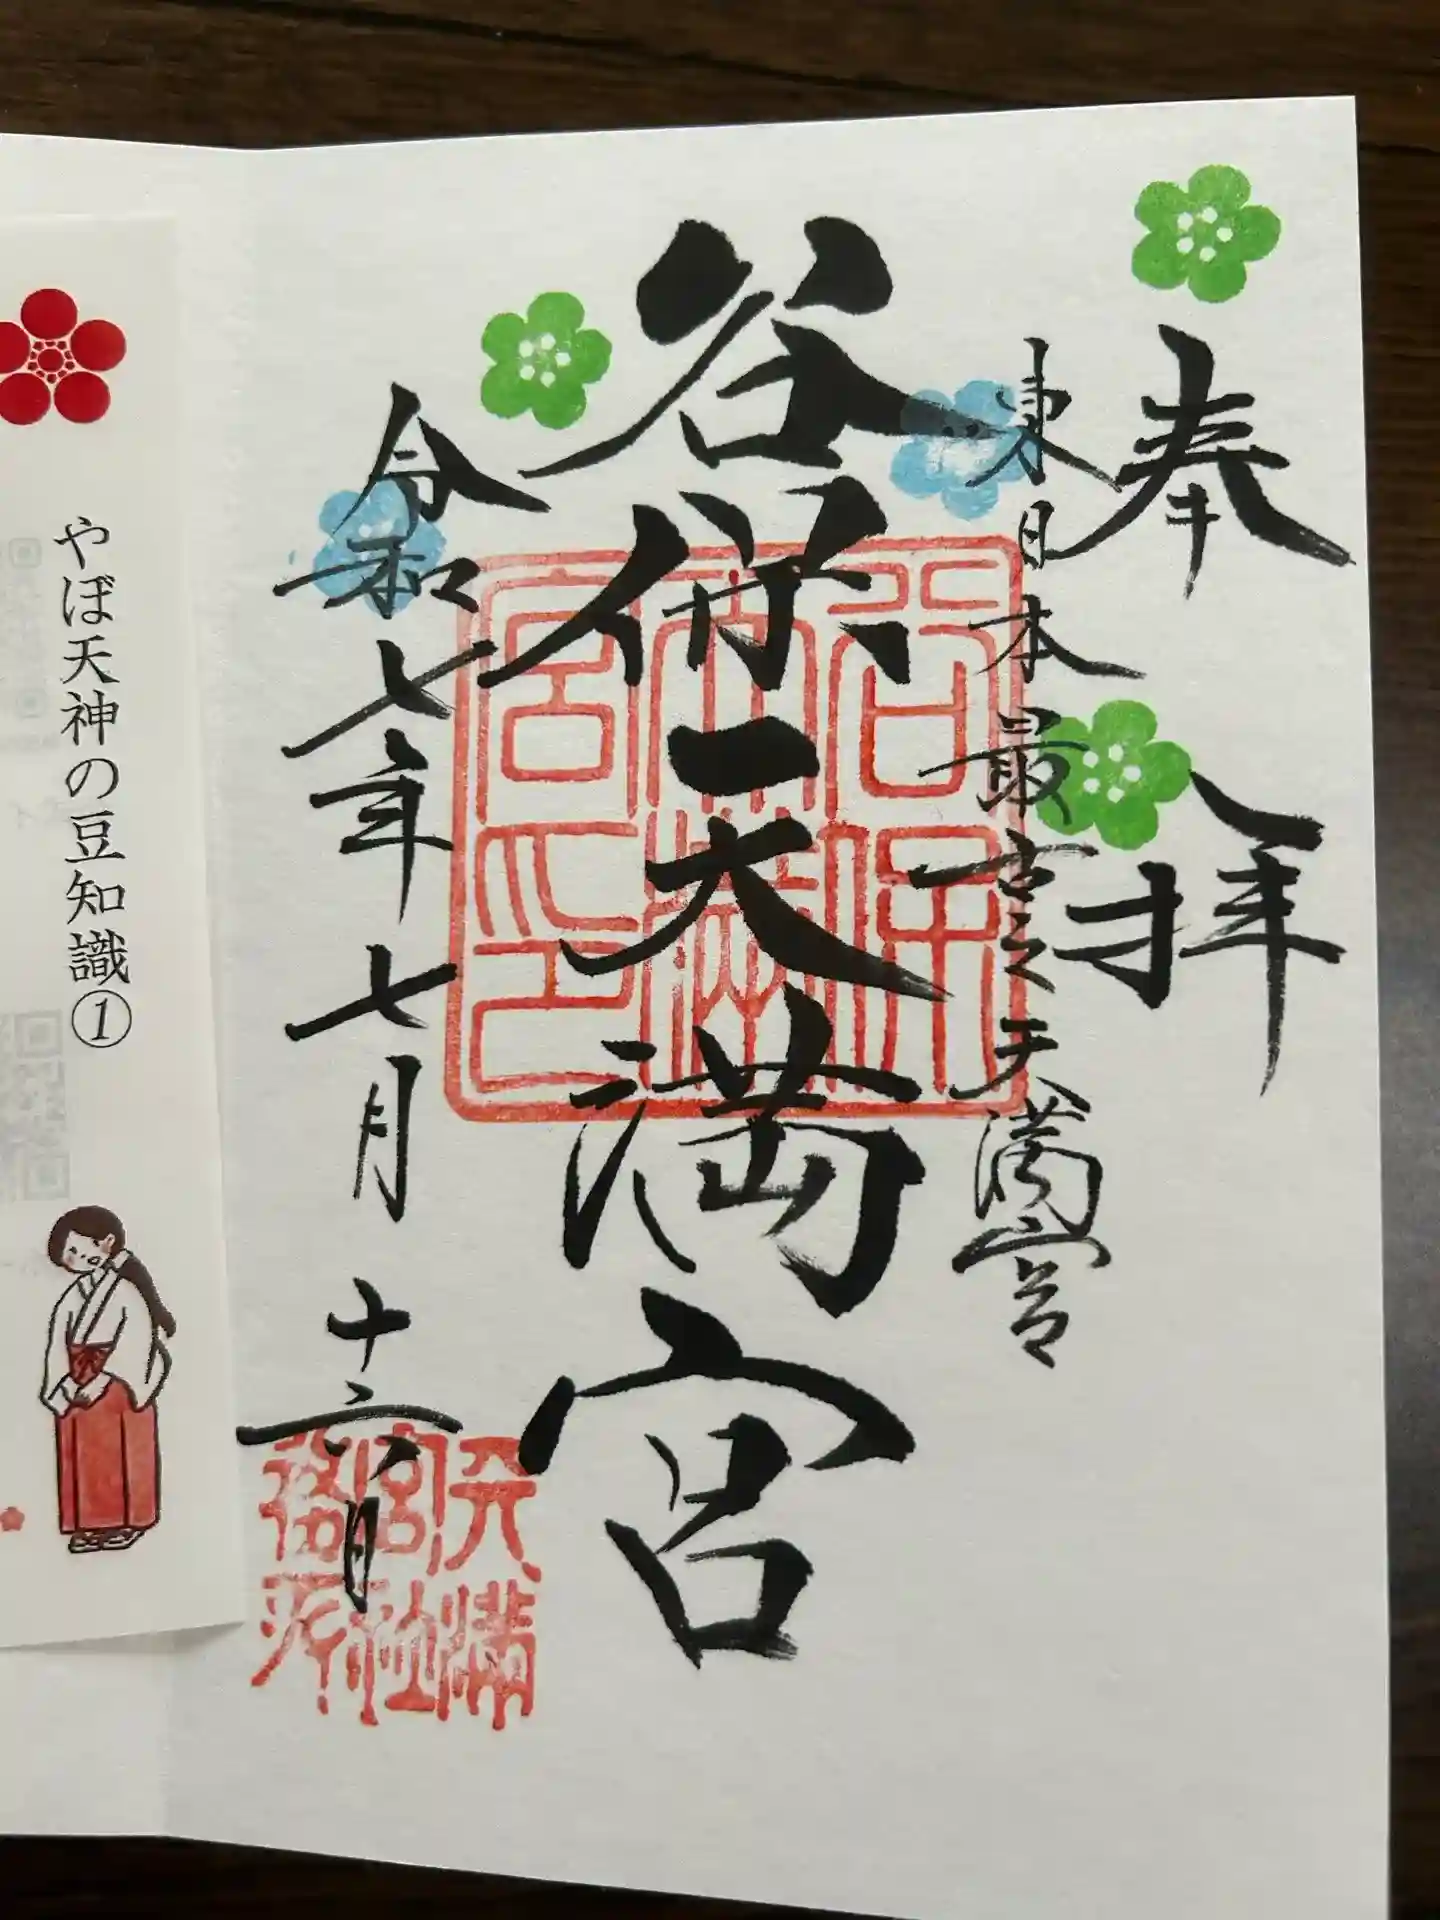 奉拝
東日本最古之天満宮
谷保天満宮
令和七年七月十六日
谷保
天満
宮之印
天満
宮社
務所
やぼ天神の豆知識①